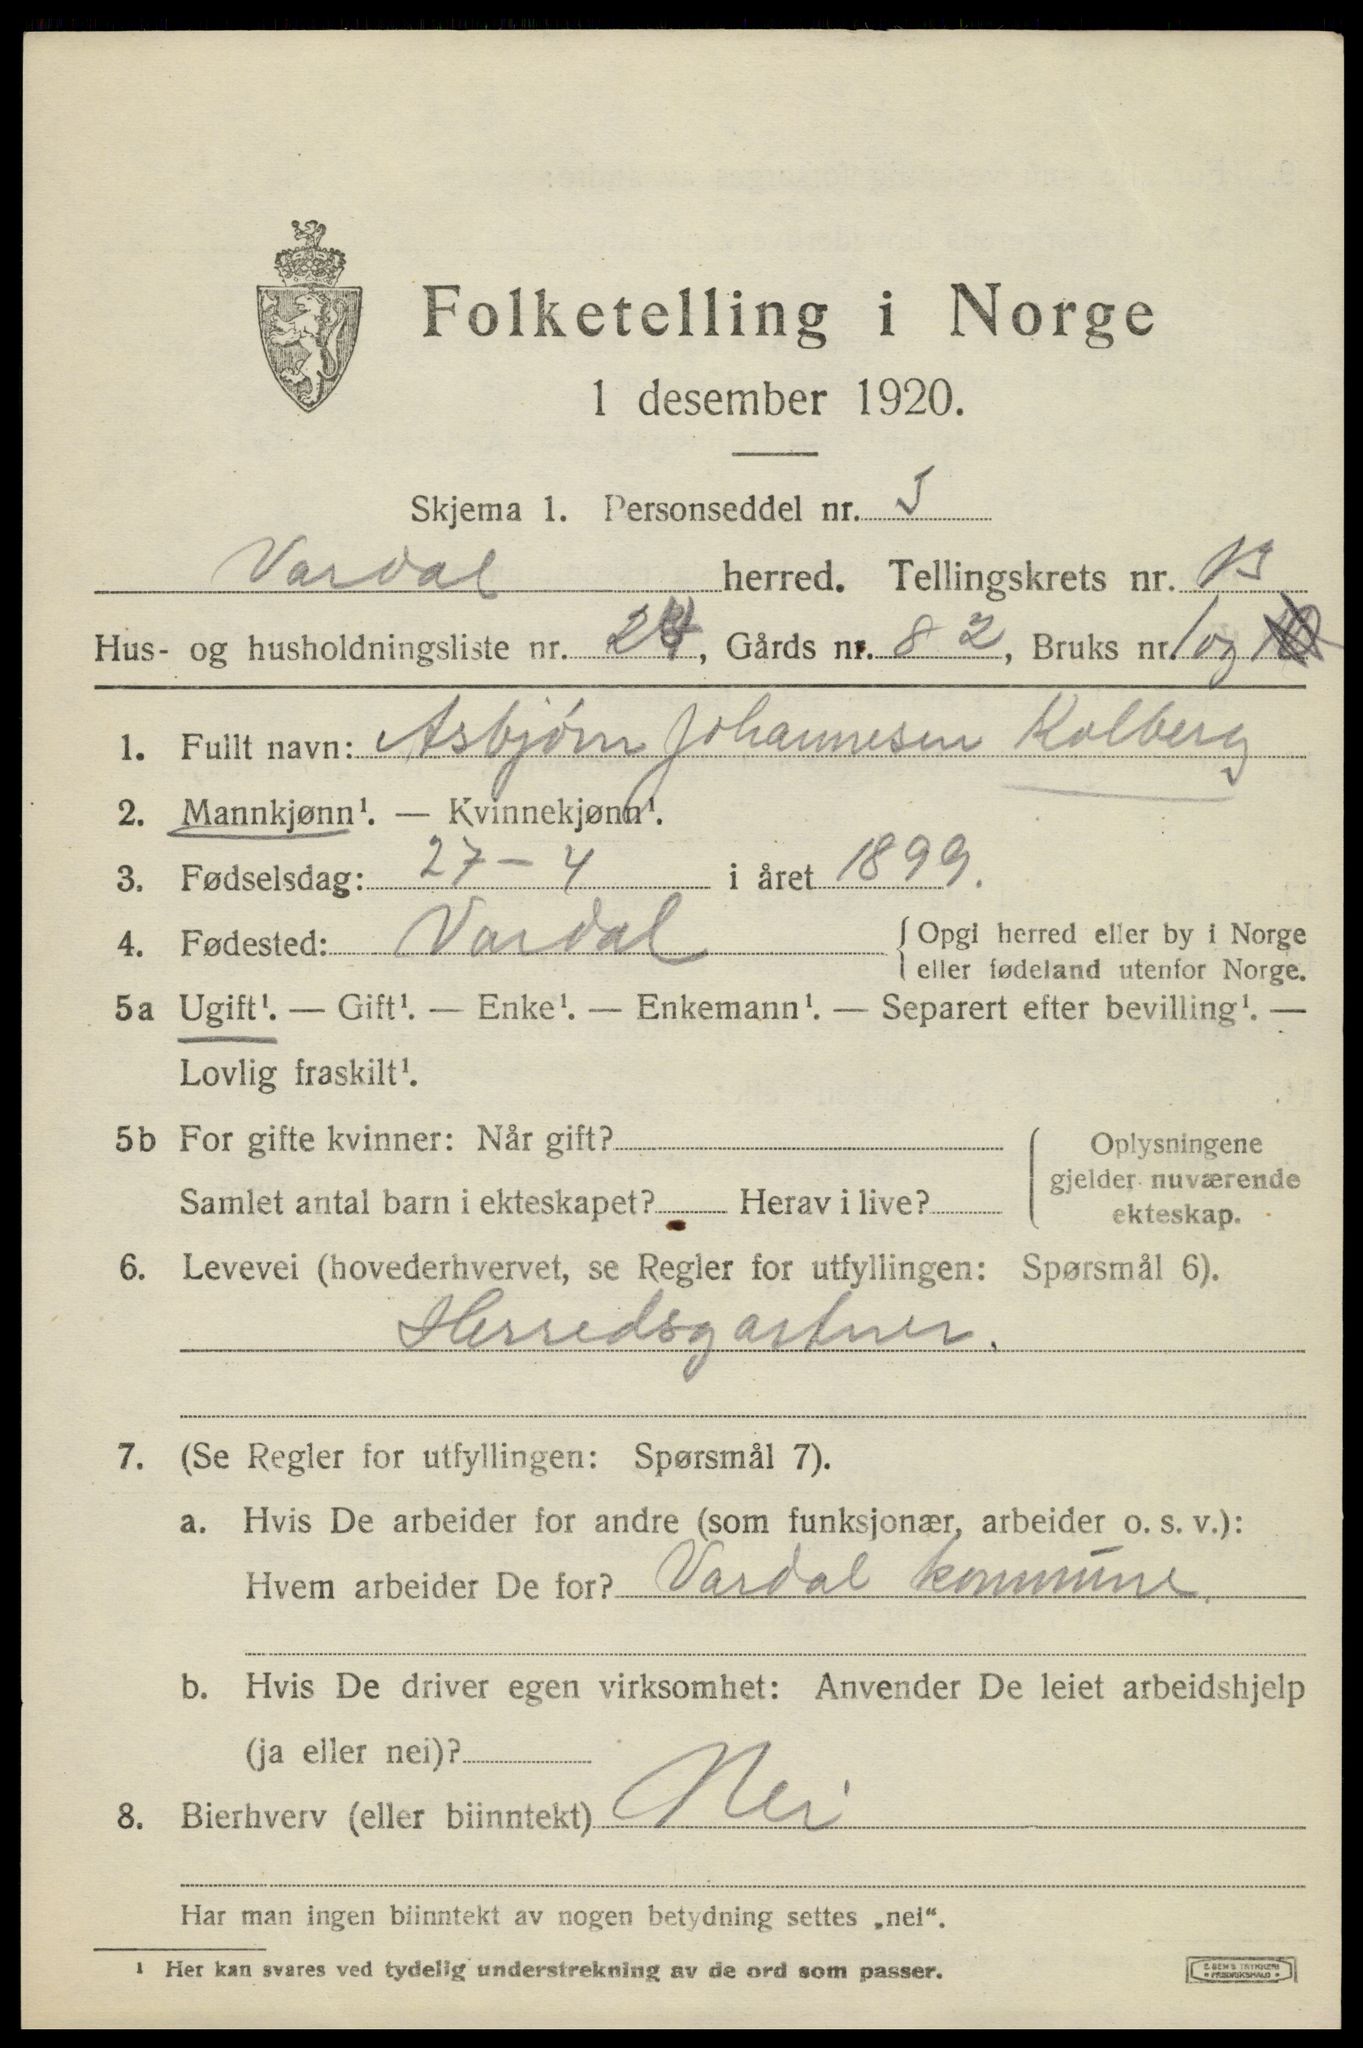 Folketelling i Norge
1 desember 1920.
Skjema 1. Personseddel nr. 5
Vardal herred. Tellingskrets nr. 13
Hus- og husholdningsliste nr. 24, Gårds nr. 82, Bruks nr. 1 og
1. Fullt navn: Asbjørn Johannesen Kolberg
2. Mannkjønn¹. — Kvinnekjønn¹.
3. Fødselsdag: 27 – 4 i året 1899.
4. Fødested: Vardal { Opgi herred eller by i Norge
eller fødeland utenfor Norge.
5a Ugift¹. — Gift¹. — Enke¹. — Enkemann¹. — Separert efter bevilling¹. —
Lovlig fraskilt¹.
5b For gifte kvinner: Når gift?
Samlet antal barn i ekteskapet? Herav i live?
Oplysningene
gjelder nuværende
ekteskap.
6. Levevei (hovederhvervet, se Regler for utfyllingen: Spørsmål 6).
Herredsgartner.
7. (Se Regler for utfyllingen: Spørsmål 7).
a. Hvis De arbeider for andre (som funksjonær, arbeider o. s. v.):
Hvem arbeider De for? Vardal kommune.
b. Hvis De driver egen virksomhet: Anvender De leiet arbeidshjelp
(ja eller nei)?
8. Bierhverv (eller biinntekt) Nei
Har man ingen biinntekt av nogen betydning settes „nei“.
¹ Her kan svares ved tydelig understrekning av de ord som passer.